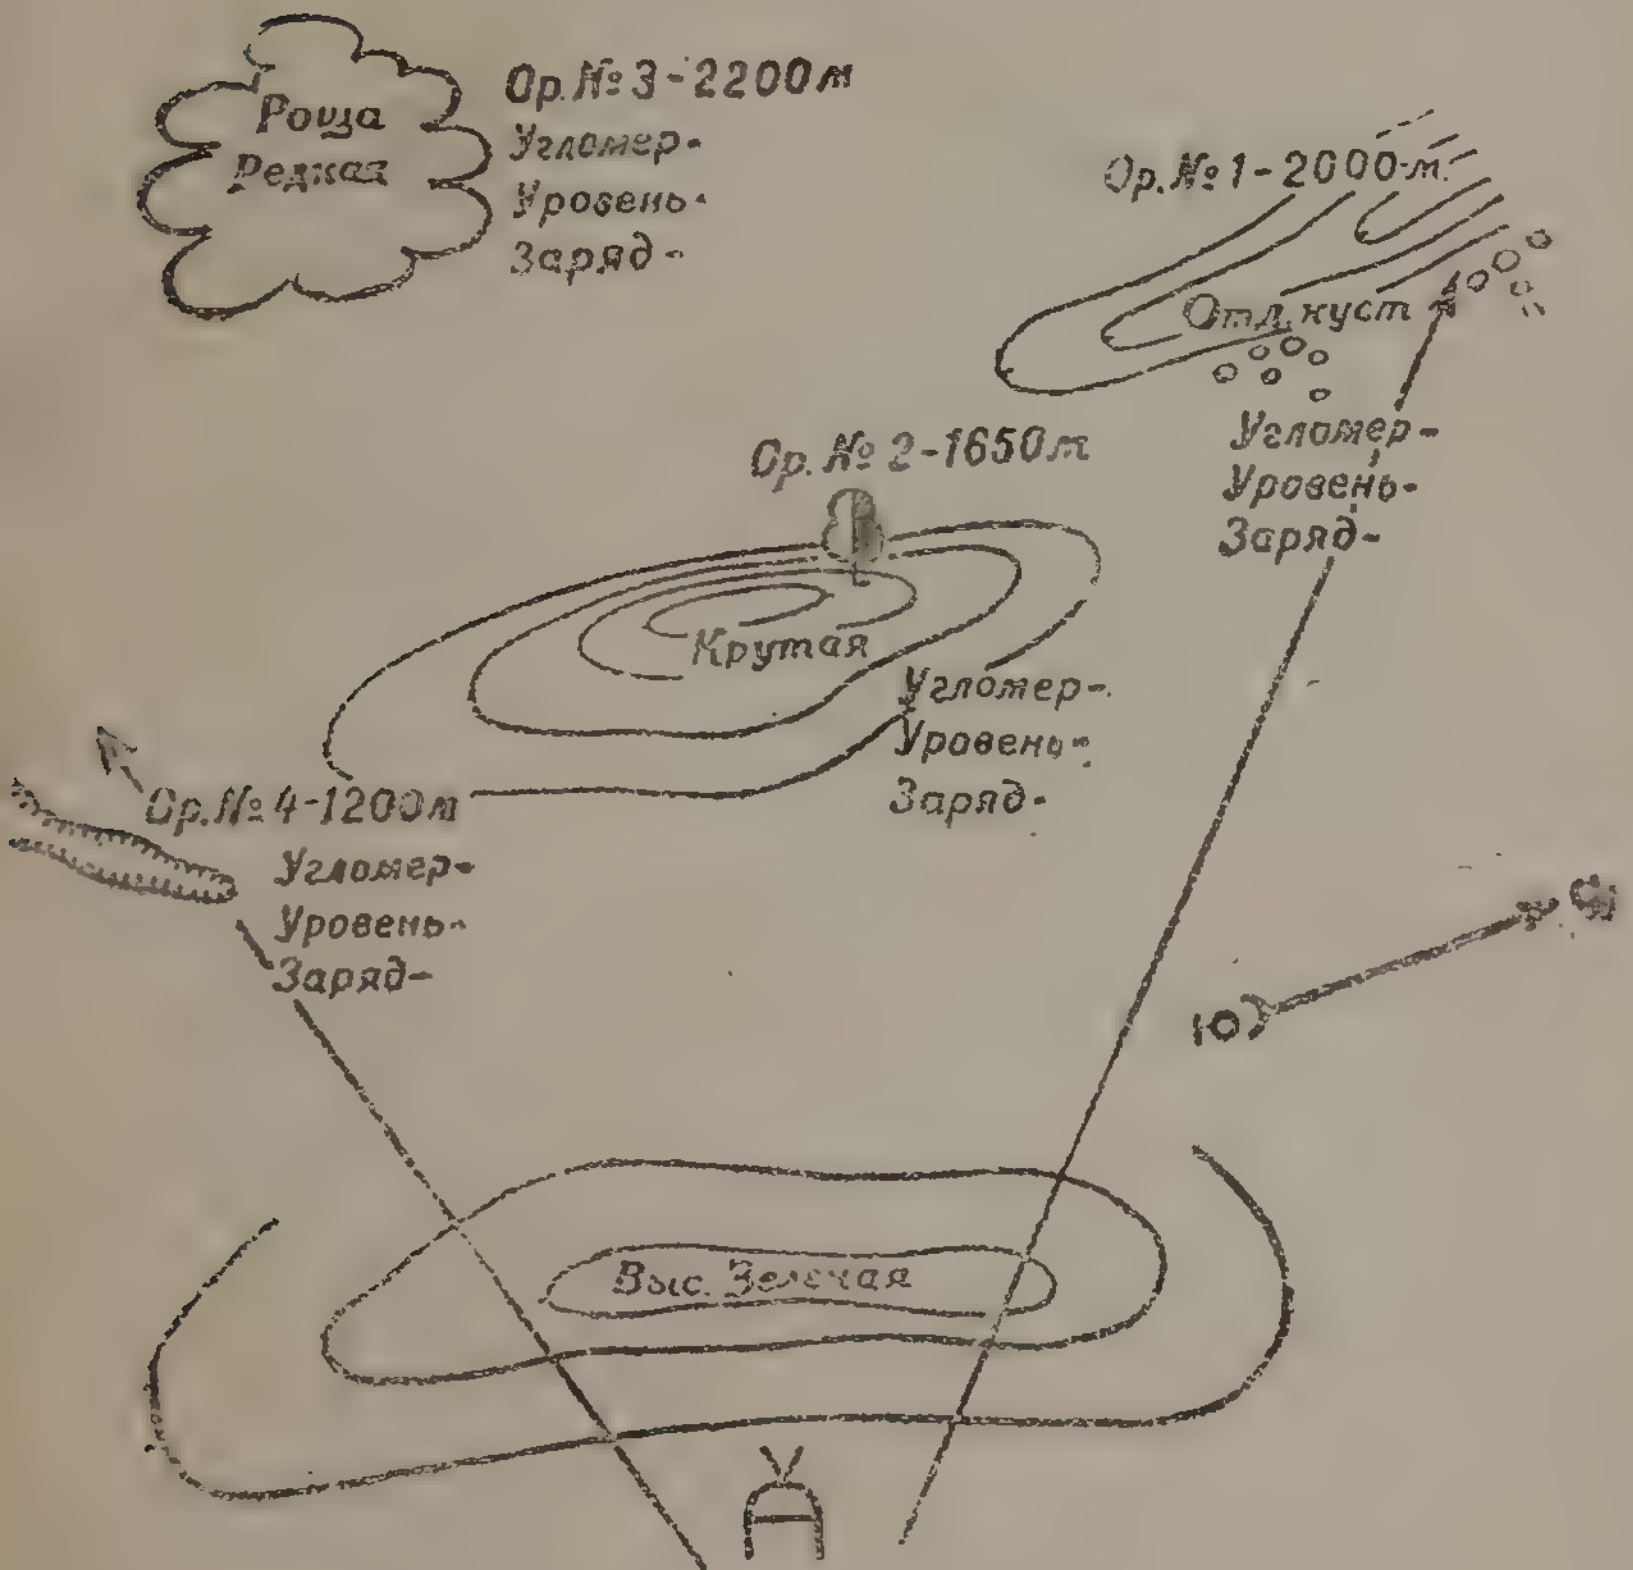 Роща
Редкая
Ор. № 3 - 2200 м
Угломер-
Уровень-
Заряд-
Ор. № 1 - 2000 м.
Отд. куст
Угломер-
Уровень-
Заряд-
Ор. № 2 - 1650 м
Крутая
Угломер-
Уровень-
Заряд-
Ор. № 4 - 1200 м
Угломер-
Уровень-
Заряд-
С
Ю
Выс. Зеленая